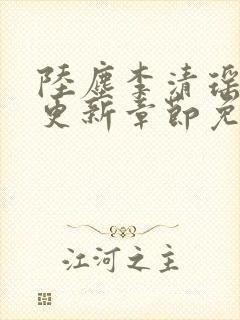 陸塵李清瑶
更新章節免
江河之主